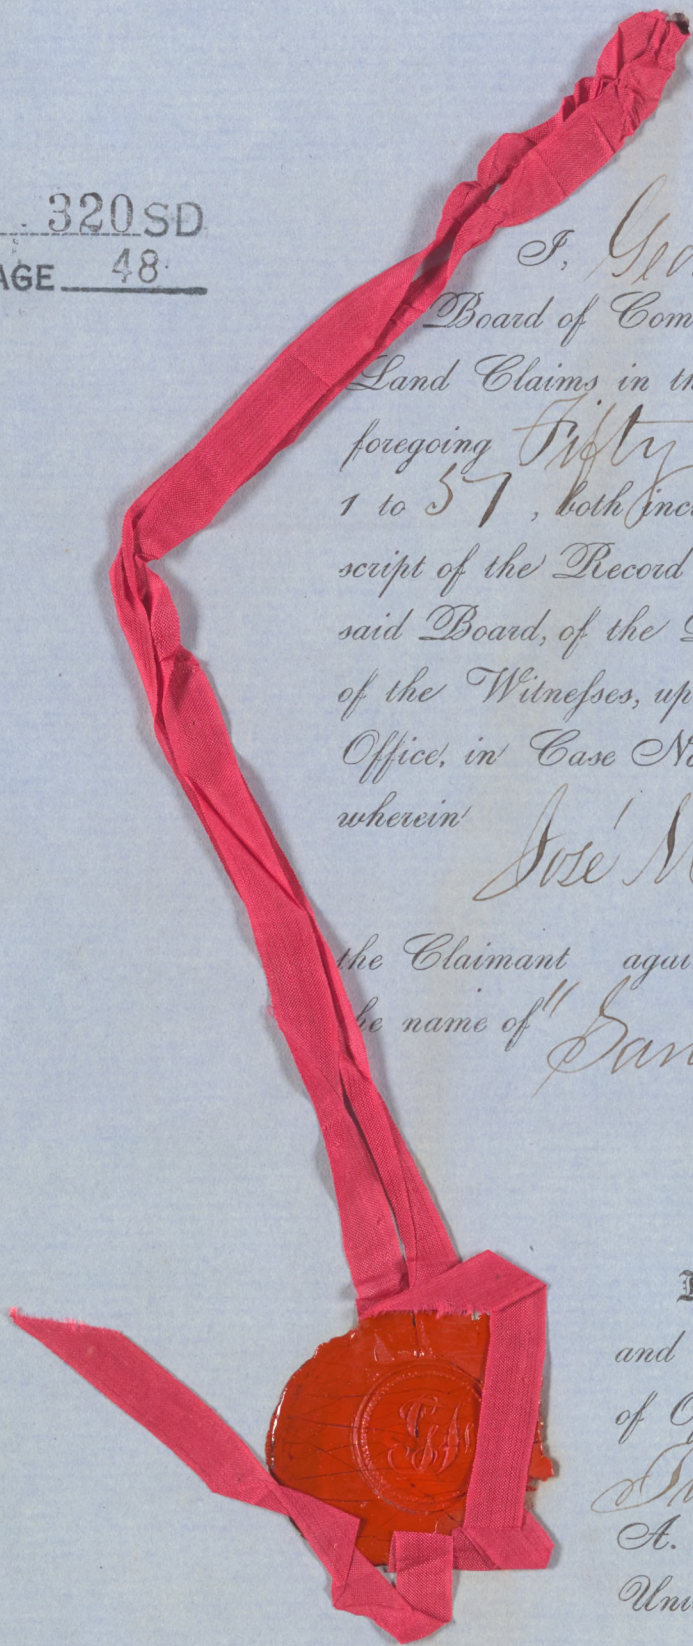 320 SD
AGE 48
I, Geo
Board of Com
Land Claims in th
foregoing Fifty
1 to 57, both incl
script of the Record
said Board, of the
of the Witnesses, up
Office, in Case No
wherein
José M
the Claimant agai
he name of "San
and
of O
A.
Uni